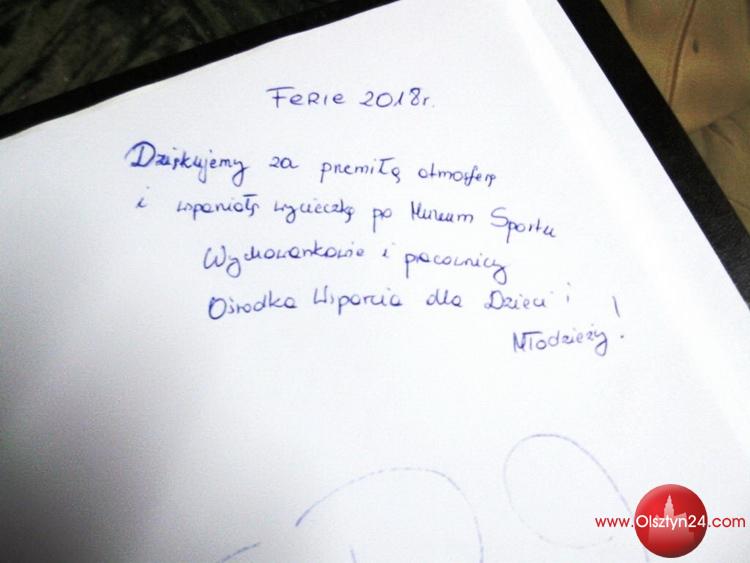 Ferie 2018r.
Dziękujemy za przemiłą atmosferę
i wspaniałą wycieczkę po Muzeum Sportu
Wychowankowie i pracownicy
Ośrodka Wsparcia dla Dzieci i
Młodzieży!
www.Olsztyn24.com